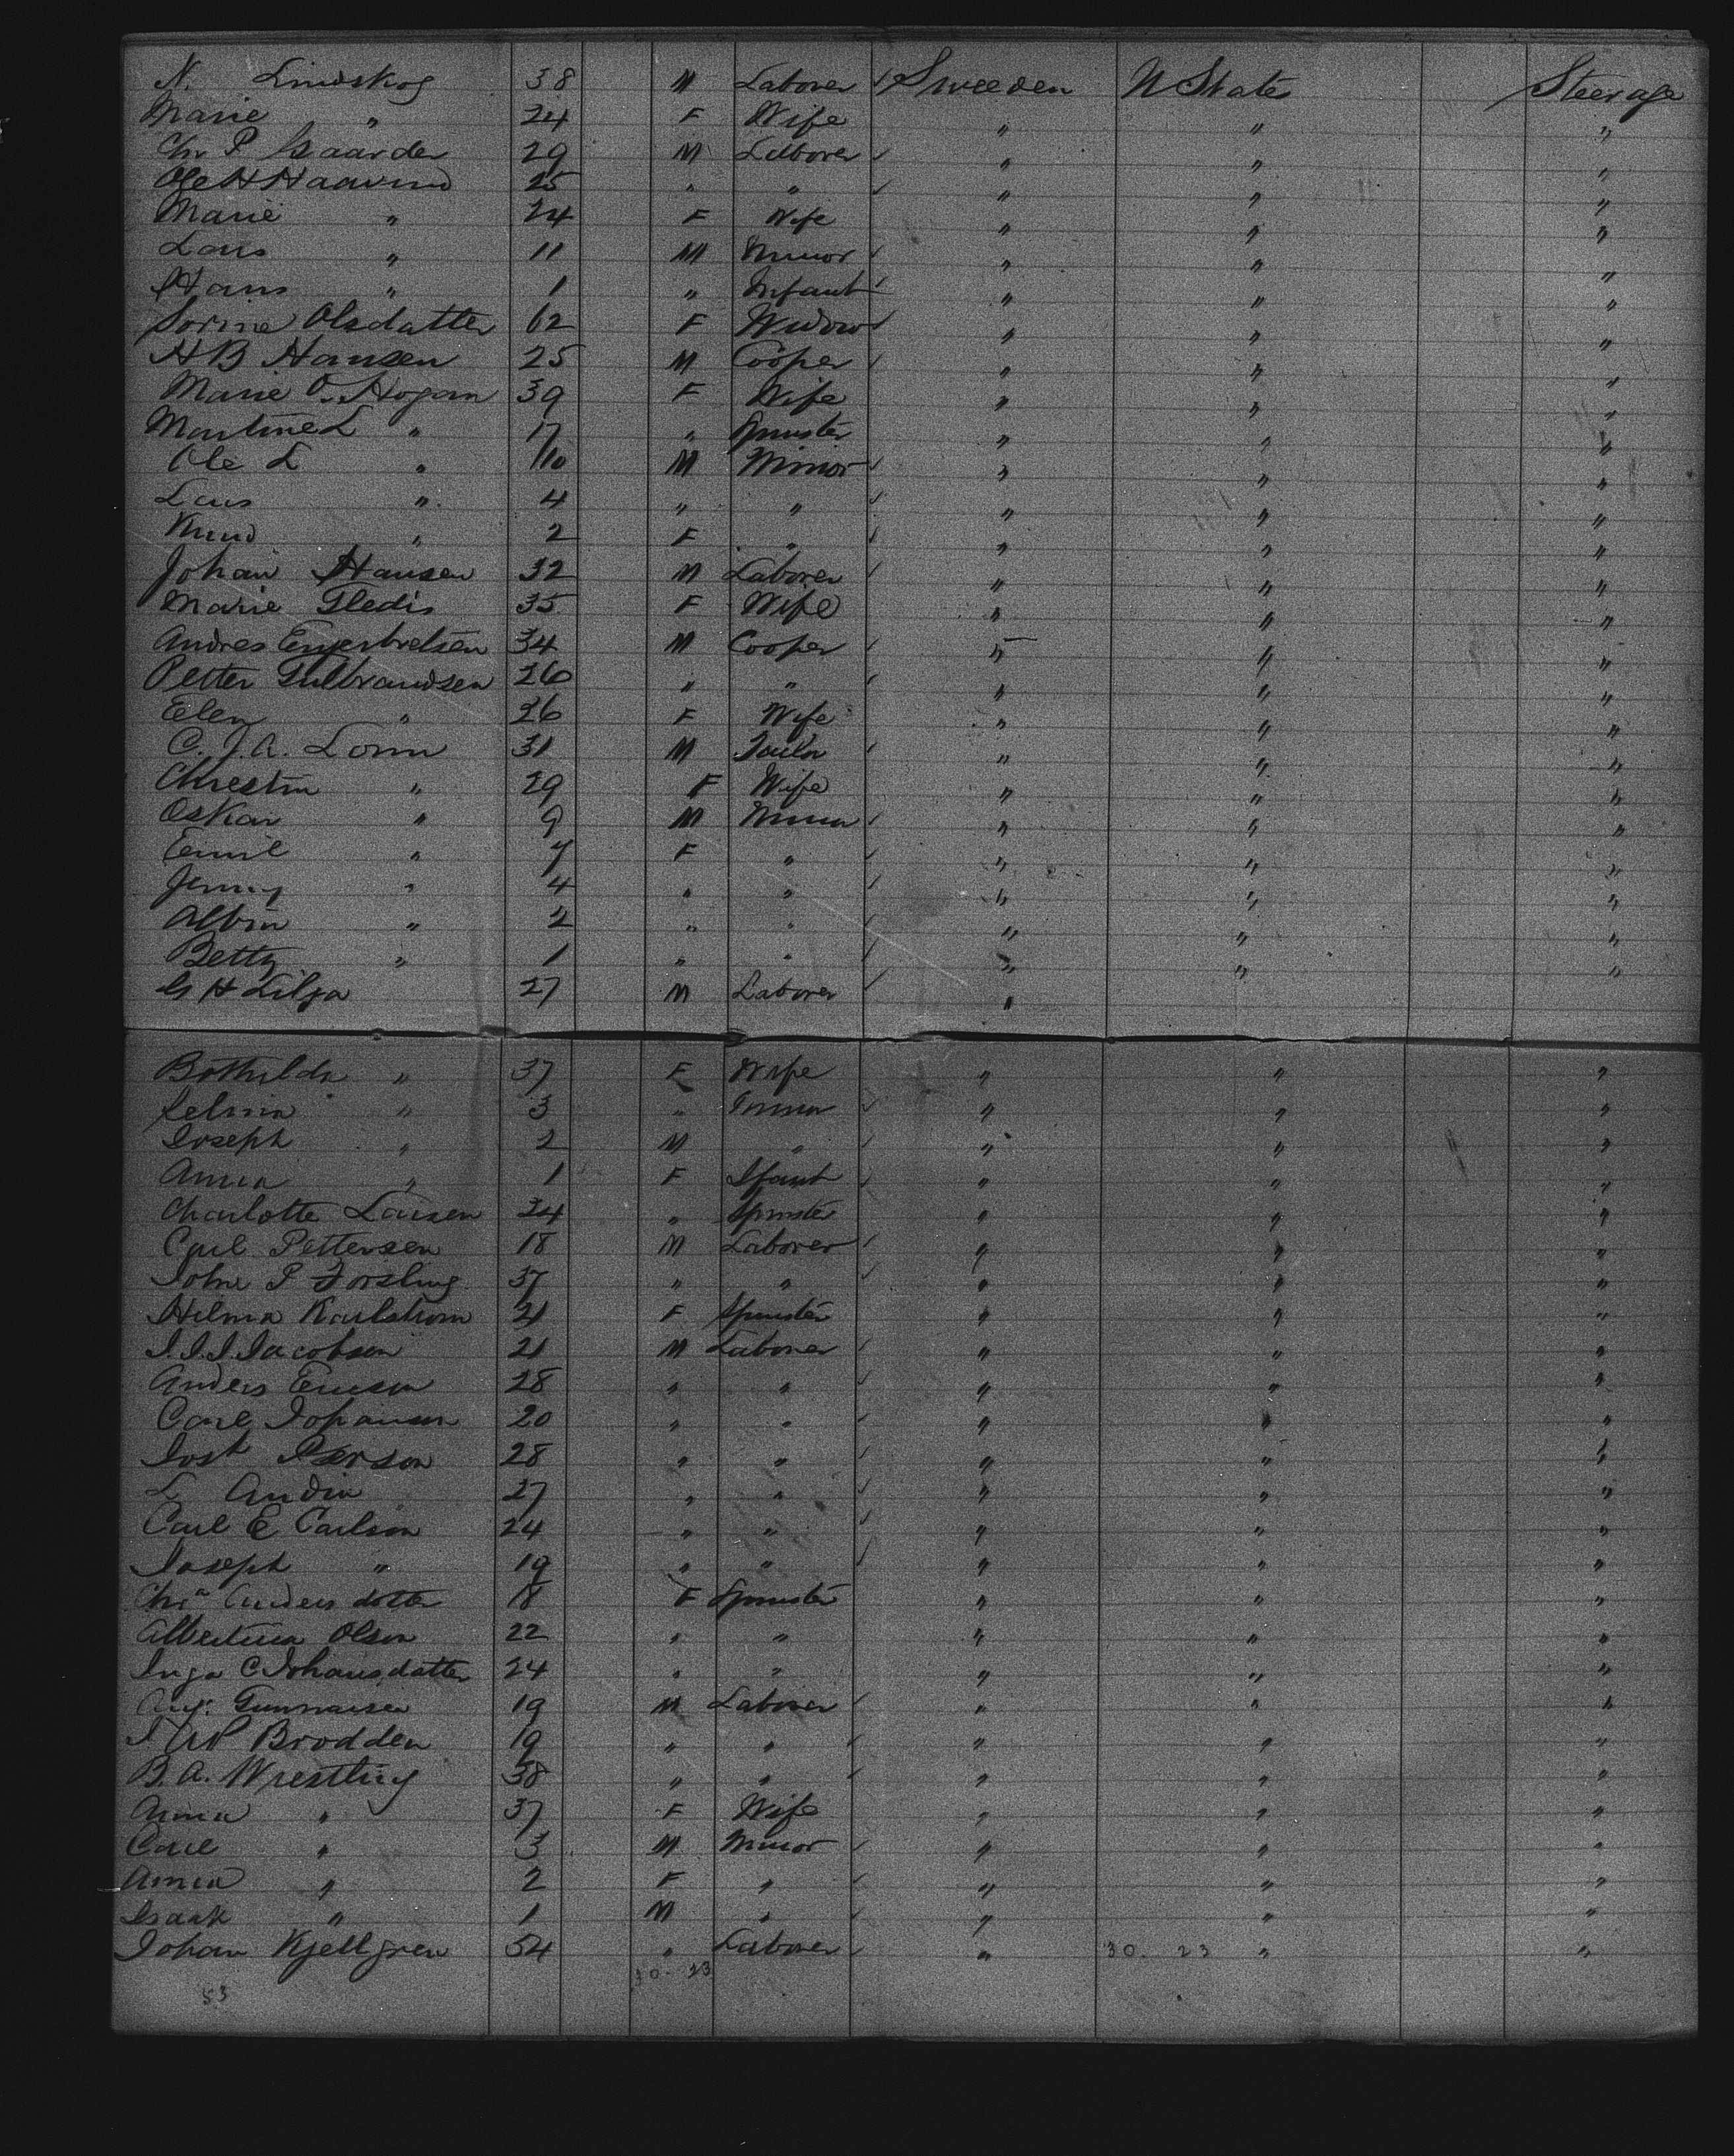 N. Lindskog 38 M Laborer ✓ Sweeden U States Steerage
Marie " 24 F Wife " " "
Chr P Gaarder 29 M Laborer ✓ " " "
Ole H Haavind 25 " " ✓ " " "
Marie " 24 F Wife " " "
Lars " 11 M Minor ✓ " " "
Hans " 1 " Infant ✓ " " "
Sorine Olsdatter 62 F Widow ✓ " " "
H B Hansen 25 M Cooper ✓ " " "
Marie O. Hogan 39 F Wife " " "
Martine L " 17 " Spinster " " "
Ole L " 10 M Minor ✓ " " "
Lars " 4 " " ✓ " " "
Knud " 2 F " ✓ " " "
Johan Hansen 32 M Laborer ✓ " " "
Marie Gledis 35 F Wife " " "
Andres Engerbretsen 34 M Cooper ✓ " " "
Petter Gulbrandsen 26 " " ✓ " " "
Elen " 26 F Wife " " "
C. J. A. Lonn 31 M Tailor ✓ " " "
Chrestin " 29 F Wife " " "
Oskar " 9 M Minor ✓ " " "
Emil " 7 F " ✓ " " "
Jenny " 4 " " ✓ " " "
Albin " 2 " " ✓ " " "
Betty " 1 " " ✓ " " "
G H Lilja 27 M Laborer ✓ "
Bothilda " 37 F Wife " " "
Selma " 3 " Minor ✓ " " "
Joseph " 2 M " ✓ " " "
Anna " 1 F Ifant ✓ " " "
Charlotte Larsen 24 " Spinster " " "
Carl Pettersen 18 M Laborer ✓ " " "
John P Forsling 37 " " ✓ " " "
Hilma Karlstrom 21 F Spinster " " "
J. J. J. Jacobson 21 M Laborer ✓ " " "
Anders Ericson 28 " " ✓ " " "
Carl Johanson 20 " " ✓ " " "
Josh Person 28 " " ✓ " " "
L Andin 27 " " ✓ " " "
Carl E Carlson 24 " " ✓ " " "
Joseph " 19 " " ✓ " " "
Chra Andersdotter 18 F Spinster " " "
Albertina Olson 22 " " " " "
Inga C Johansdatter 24 " " " " "
Aug. Gunnarsen 19 M Laborer ✓ " " "
J Brodden 19 " " ✓ " " "
B. A. Wrestling 38 " " ✓ " " "
Anna " 37 F Wife " " "
Carl " 3 M Minor ✓ " " "
Anna " 2 F " ✓ " " "
Isaak " 1 M " ✓ " " "
Johan Kjellgren 54 " Laborer ✓ " 30. 23 " "
30-23
53